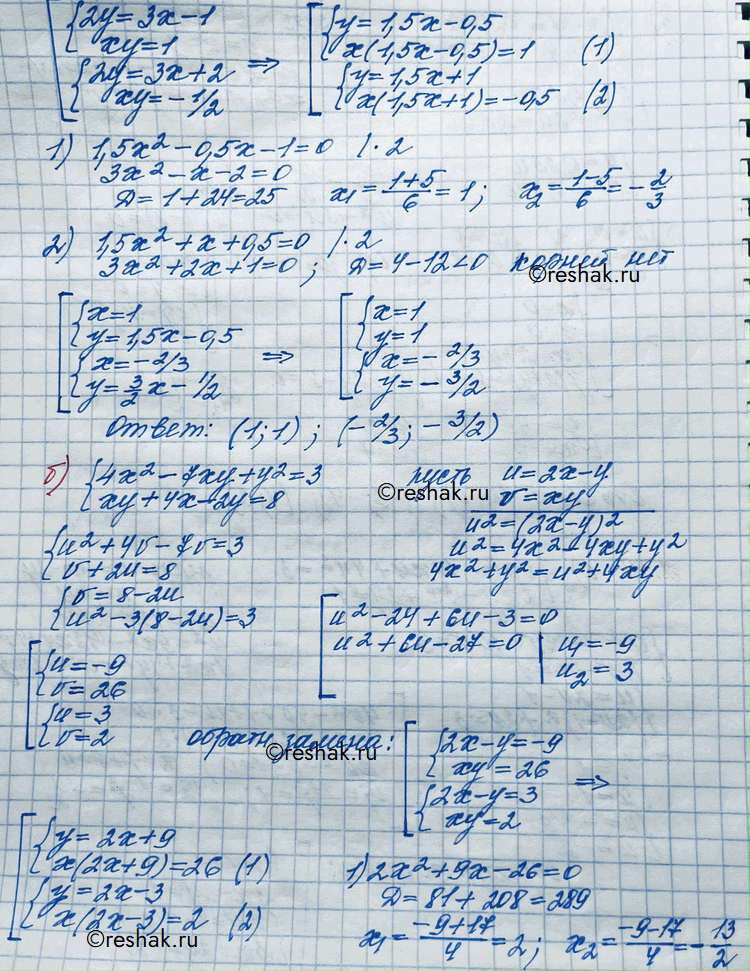 {2y=3x-1
xy=1
{2y=3x+2
xy=-1/2
⇒
{y=1,5x-0,5
x(1,5x-0,5)=1 (1)
{y=1,5x+1
x(1,5x+1)=-0,5 (2)
1) 1,5x²-0,5x-1=0 |·2
3x²-x-2=0
D=1+24=25 x₁=(1+5)/6=1; x₂=(1-5)/6=-2/3
2) 1,5x²+x+0,5=0 |·2
3x²+2x+1=0; D=4-12<0 корней нет
©reshak.ru
{x=1
y=1,5x-0,5
{x=-2/3
y=3/2x-1/2
⇒
{x=1
y=1
{x=-2/3
y=-3/2
Ответ: (1;1); (-2/3; -3/2)
б) {4x²-7xy+y²=3
xy+4x-2y=8
пусть u=2x-y
v=xy
©reshak.ru
u²=(2x-y)²
u²=4x²-4xy+y²
4x²+y²=u²+4xy
{u²+4v-7v=3
v+2u=8
{v=8-2u
u²-3(8-2u)=3
[u²-24+6u-3=0
u²+6u-27=0 | u₁=-9
u₂=3
{u=-9
v=26
{u=3
v=2
обратн. замена:
©reshak.ru
{2x-y=-9
xy=26
{2x-y=3
xy=2
⇒
{y=2x+9
x(2x+9)=26 (1)
{y=2x-3
x(2x-3)=2 (2)
©reshak.ru
1) 2x²+9x-26=0
D=81+208=289
x₁=(-9+17)/4=2; x₂=(-9-17)/4=-13/2